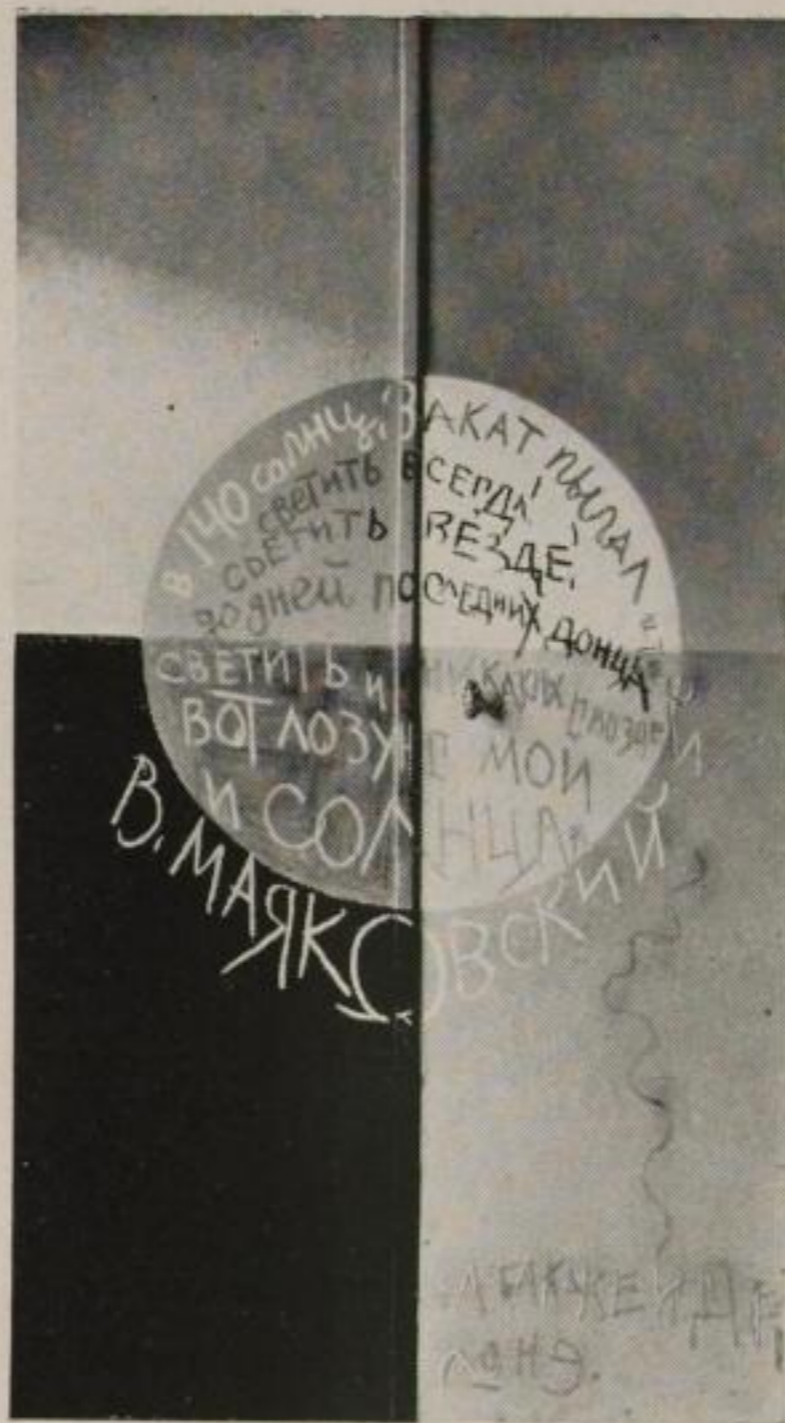 В 140 СОЛНЦ ЗАКАТ ПЫЛАЛ
СВЕТИТЬ ВСЕГДА,
СВЕТИТЬ ВЕЗДЕ,
ДО ДНЕЙ ПОСЛЕДНИХ ДОНЦА
СВЕТИТЬ И НИКАКИХ ГВОЗДЕЙ
ВОТ ЛОЗУНГ МОЙ
И СОЛНЦА
В. МАЯКОВСКИЙ